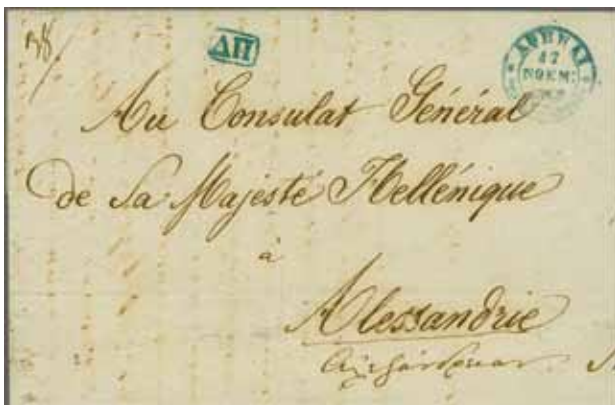 ΔΠ
ΑΘΗΝΑΙ
17
ΝΟΕΜ:
Au Consulat Général
de Sa Majesté Hellénique
à
Alessandrie